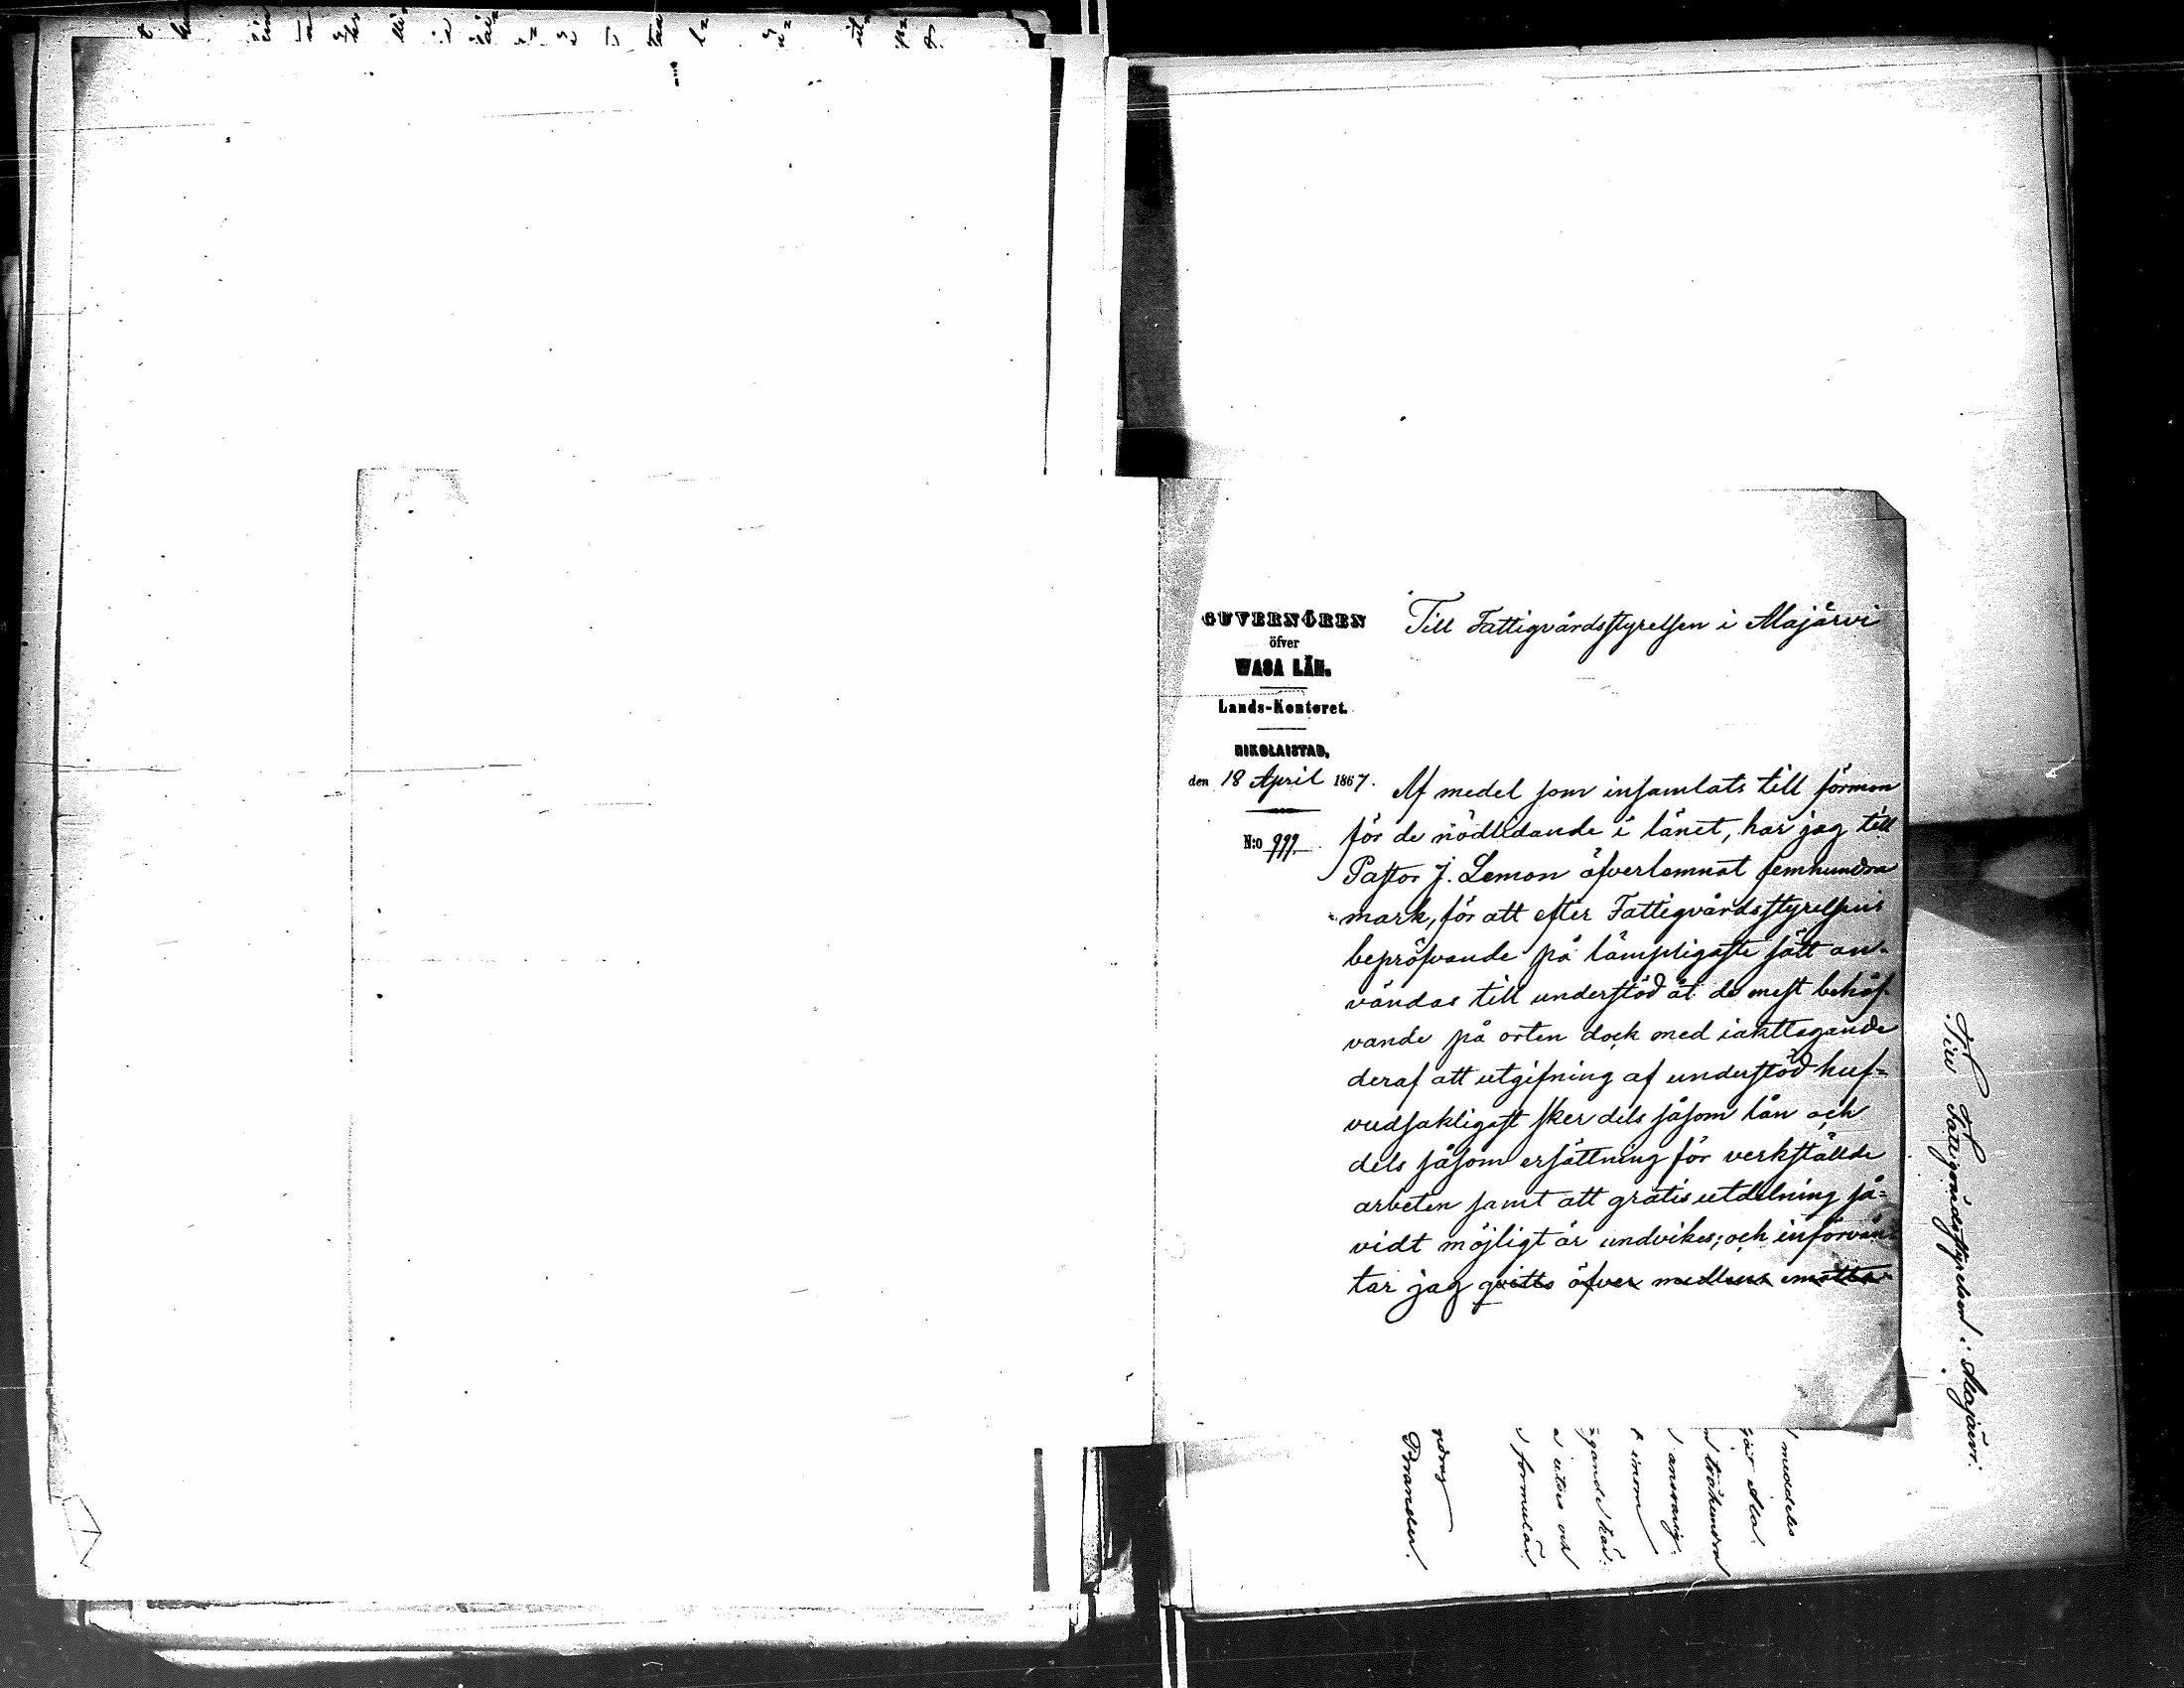 GUVERNÖREN
öfver
WASA LÄN.
Lands-Kontoret.
NIKOLAISTAD,
den 18 April 1867.
N:o 999.
Till Fattigvårdsstyrelsen i Alajärvi
Af medel som insamlats till förmon
för de nödlidande i länet, har jag till
Pastor J. Lemon öfverlemnat femhundra
mark, för att efter Fattigvårdsstyrelsens
bepröfvande på lämpligaste sätt an-
vändas till understöd åt de mest behöf-
vande på orten dock med iakttagande
deraf att utgifning af understöd huf-
vudsakligast sker dels såsom lån och
dels såsom ersättning för verkställde
arbeten samt att gratis utdelning så-
vidt möjligt är undvikes; och införvän-
tar jag qvitto öfver medlens emotta-
Till Fattigvårdsstyrelsen i Alajärvi.
medelès
för Ala-
tvåhundra
ansvarig-
inom
gande
formulär
Brander.